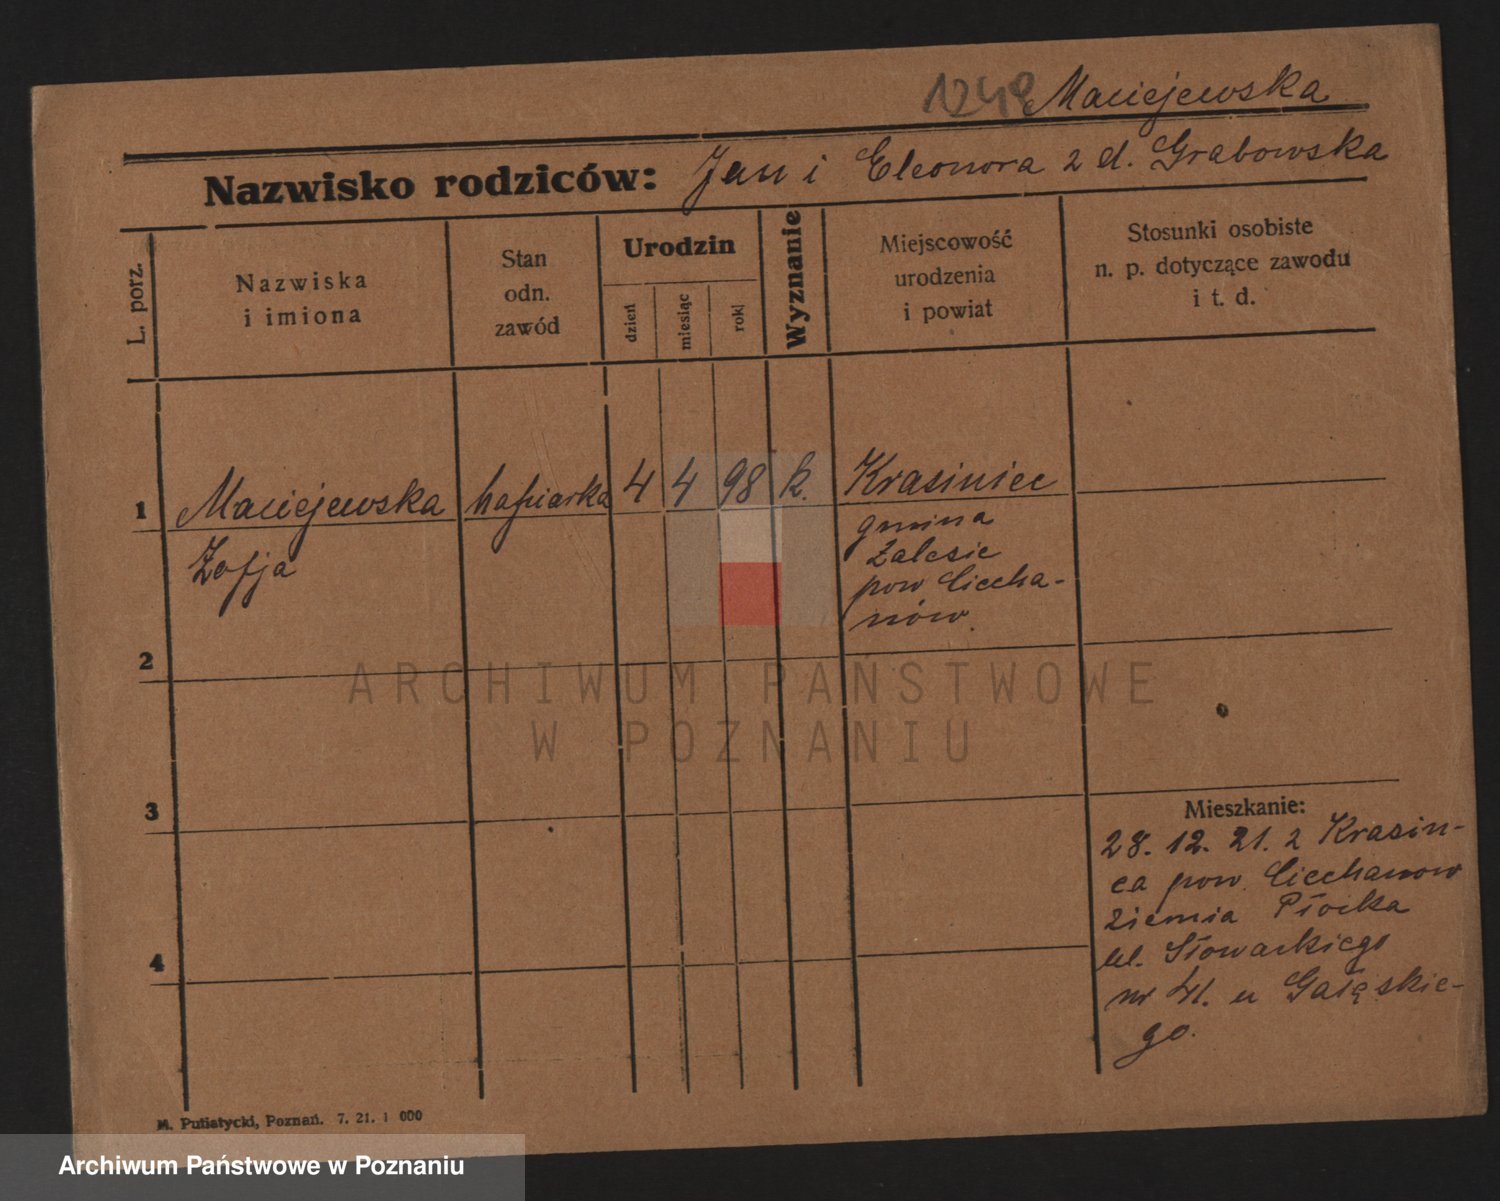 1249 Maciejewska
Nazwisko rodziców: Jan i Eleonora z d. Grabowska
L. porz.
Nazwiska
i imiona
Stan
odn.
zawód
Urodzin
dzień
miesiąc
rok
Wyznanie
Miejscowość
urodzenia
i powiat
Stosunki osobiste
n. p. dotyczące zawodu
i t. d.
1 Maciejewska hafciarka 4 4 98 k. Krasiniec
Zofja
gmina
Zalesie
pow Ciecha-
nów.
2
3
4
Mieszkanie:
28. 12. 21. z Krasin-
ca pow. Ciechanow
ziemia Płocka
ul. Słowackiego
nr 41. u Gałęskie-
go.
M. Putiatycki, Poznań. 7. 21. 1 000
ARCHIWUM PAŃSTWOWE
W POZNANIU
Archiwum Państwowe w Poznaniu